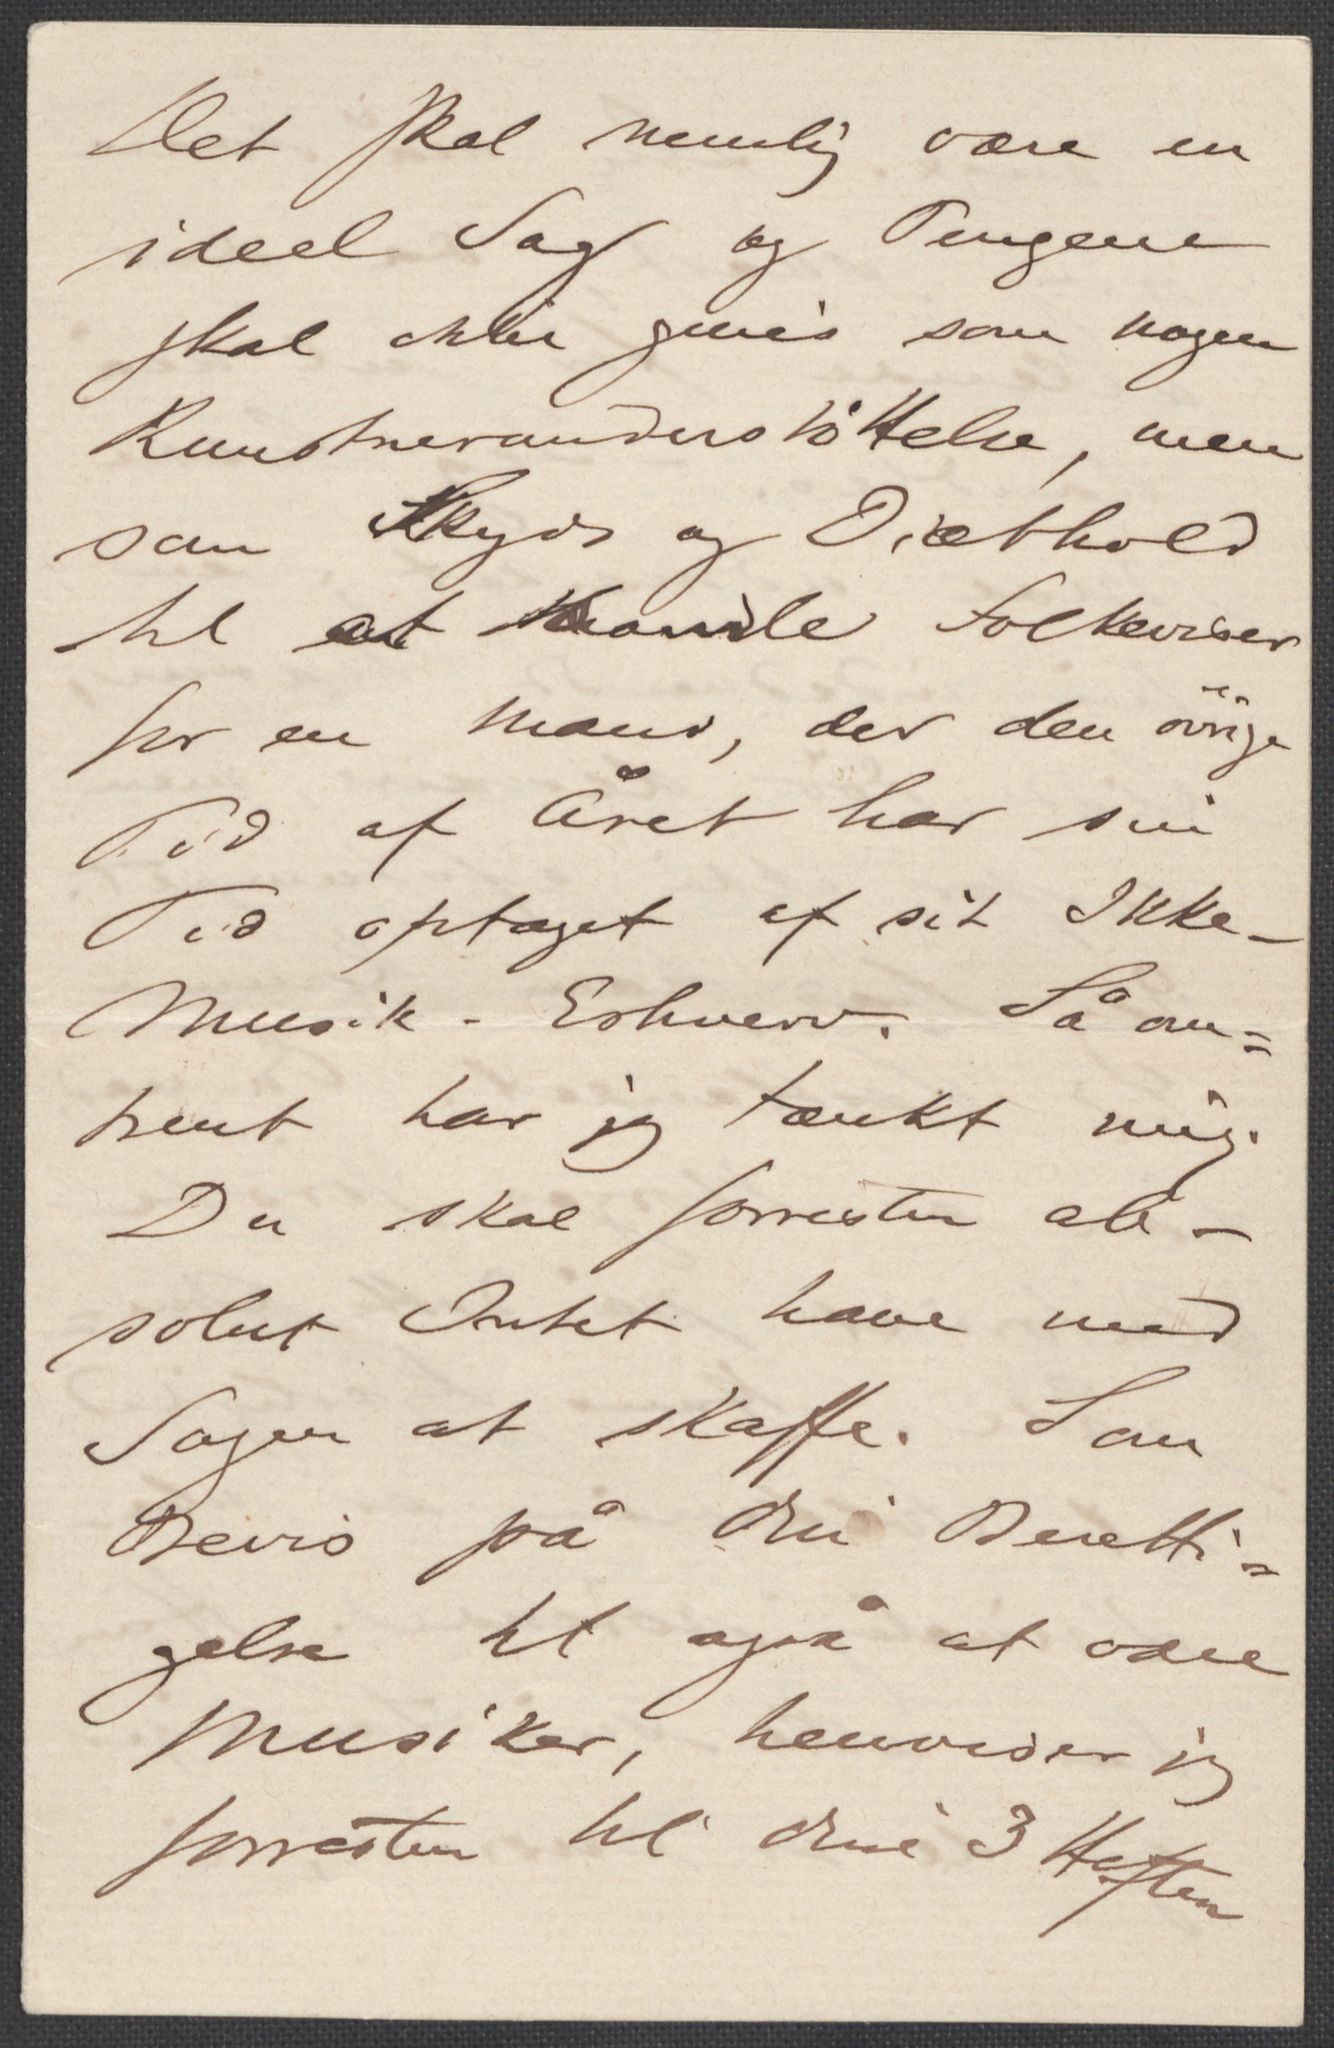 Det skal nemlig være en
ideel Sag og Pengene
skal ikke gives som nogen
Kunstnerunderstöttelse, men
som Skyds og Diæthold
til at samle Folkeviser
for en Mand, der den övrige
Tid af Året har sin
Tid optaget af sit Ikke-
Musik-Erhverv. Så om=
trent har jeg tænkt mig.
Du skal forresten ab-
solut Intet have med
Sagen at skaffe. Som
Bevis på din Beretti=
gelse til også at være
Musiker, henviser jeg
forresten til dine 3 Hefter